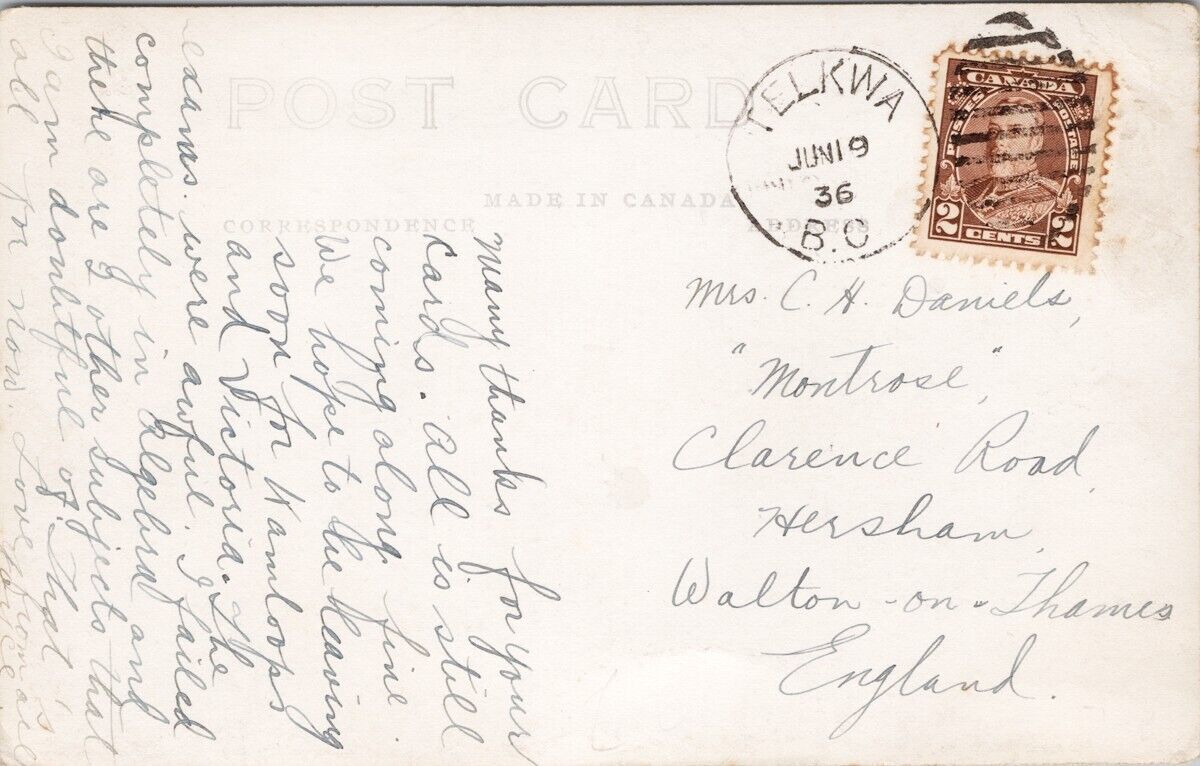 POST CARD
MADE IN CANADA
CORRESPONDENCE
ADDRESS
TELKWA
JUN 19
36
B.C
CANADA
POSTES POSTAGE
2 CENTS 2
Many thanks for your
cards. All is still
coming along fine
We hope to be leaving
soon for Kamloops
and Victoria. The
exams. were awful. I failed
completely in algebra and
there are 2 other subjects that
I am doubtful of. That's
all for now. Love from all
Mrs. C. H. Daniels,
"Montrose",
Clarence Road,
Hersham,
Walton-on-Thames
England.